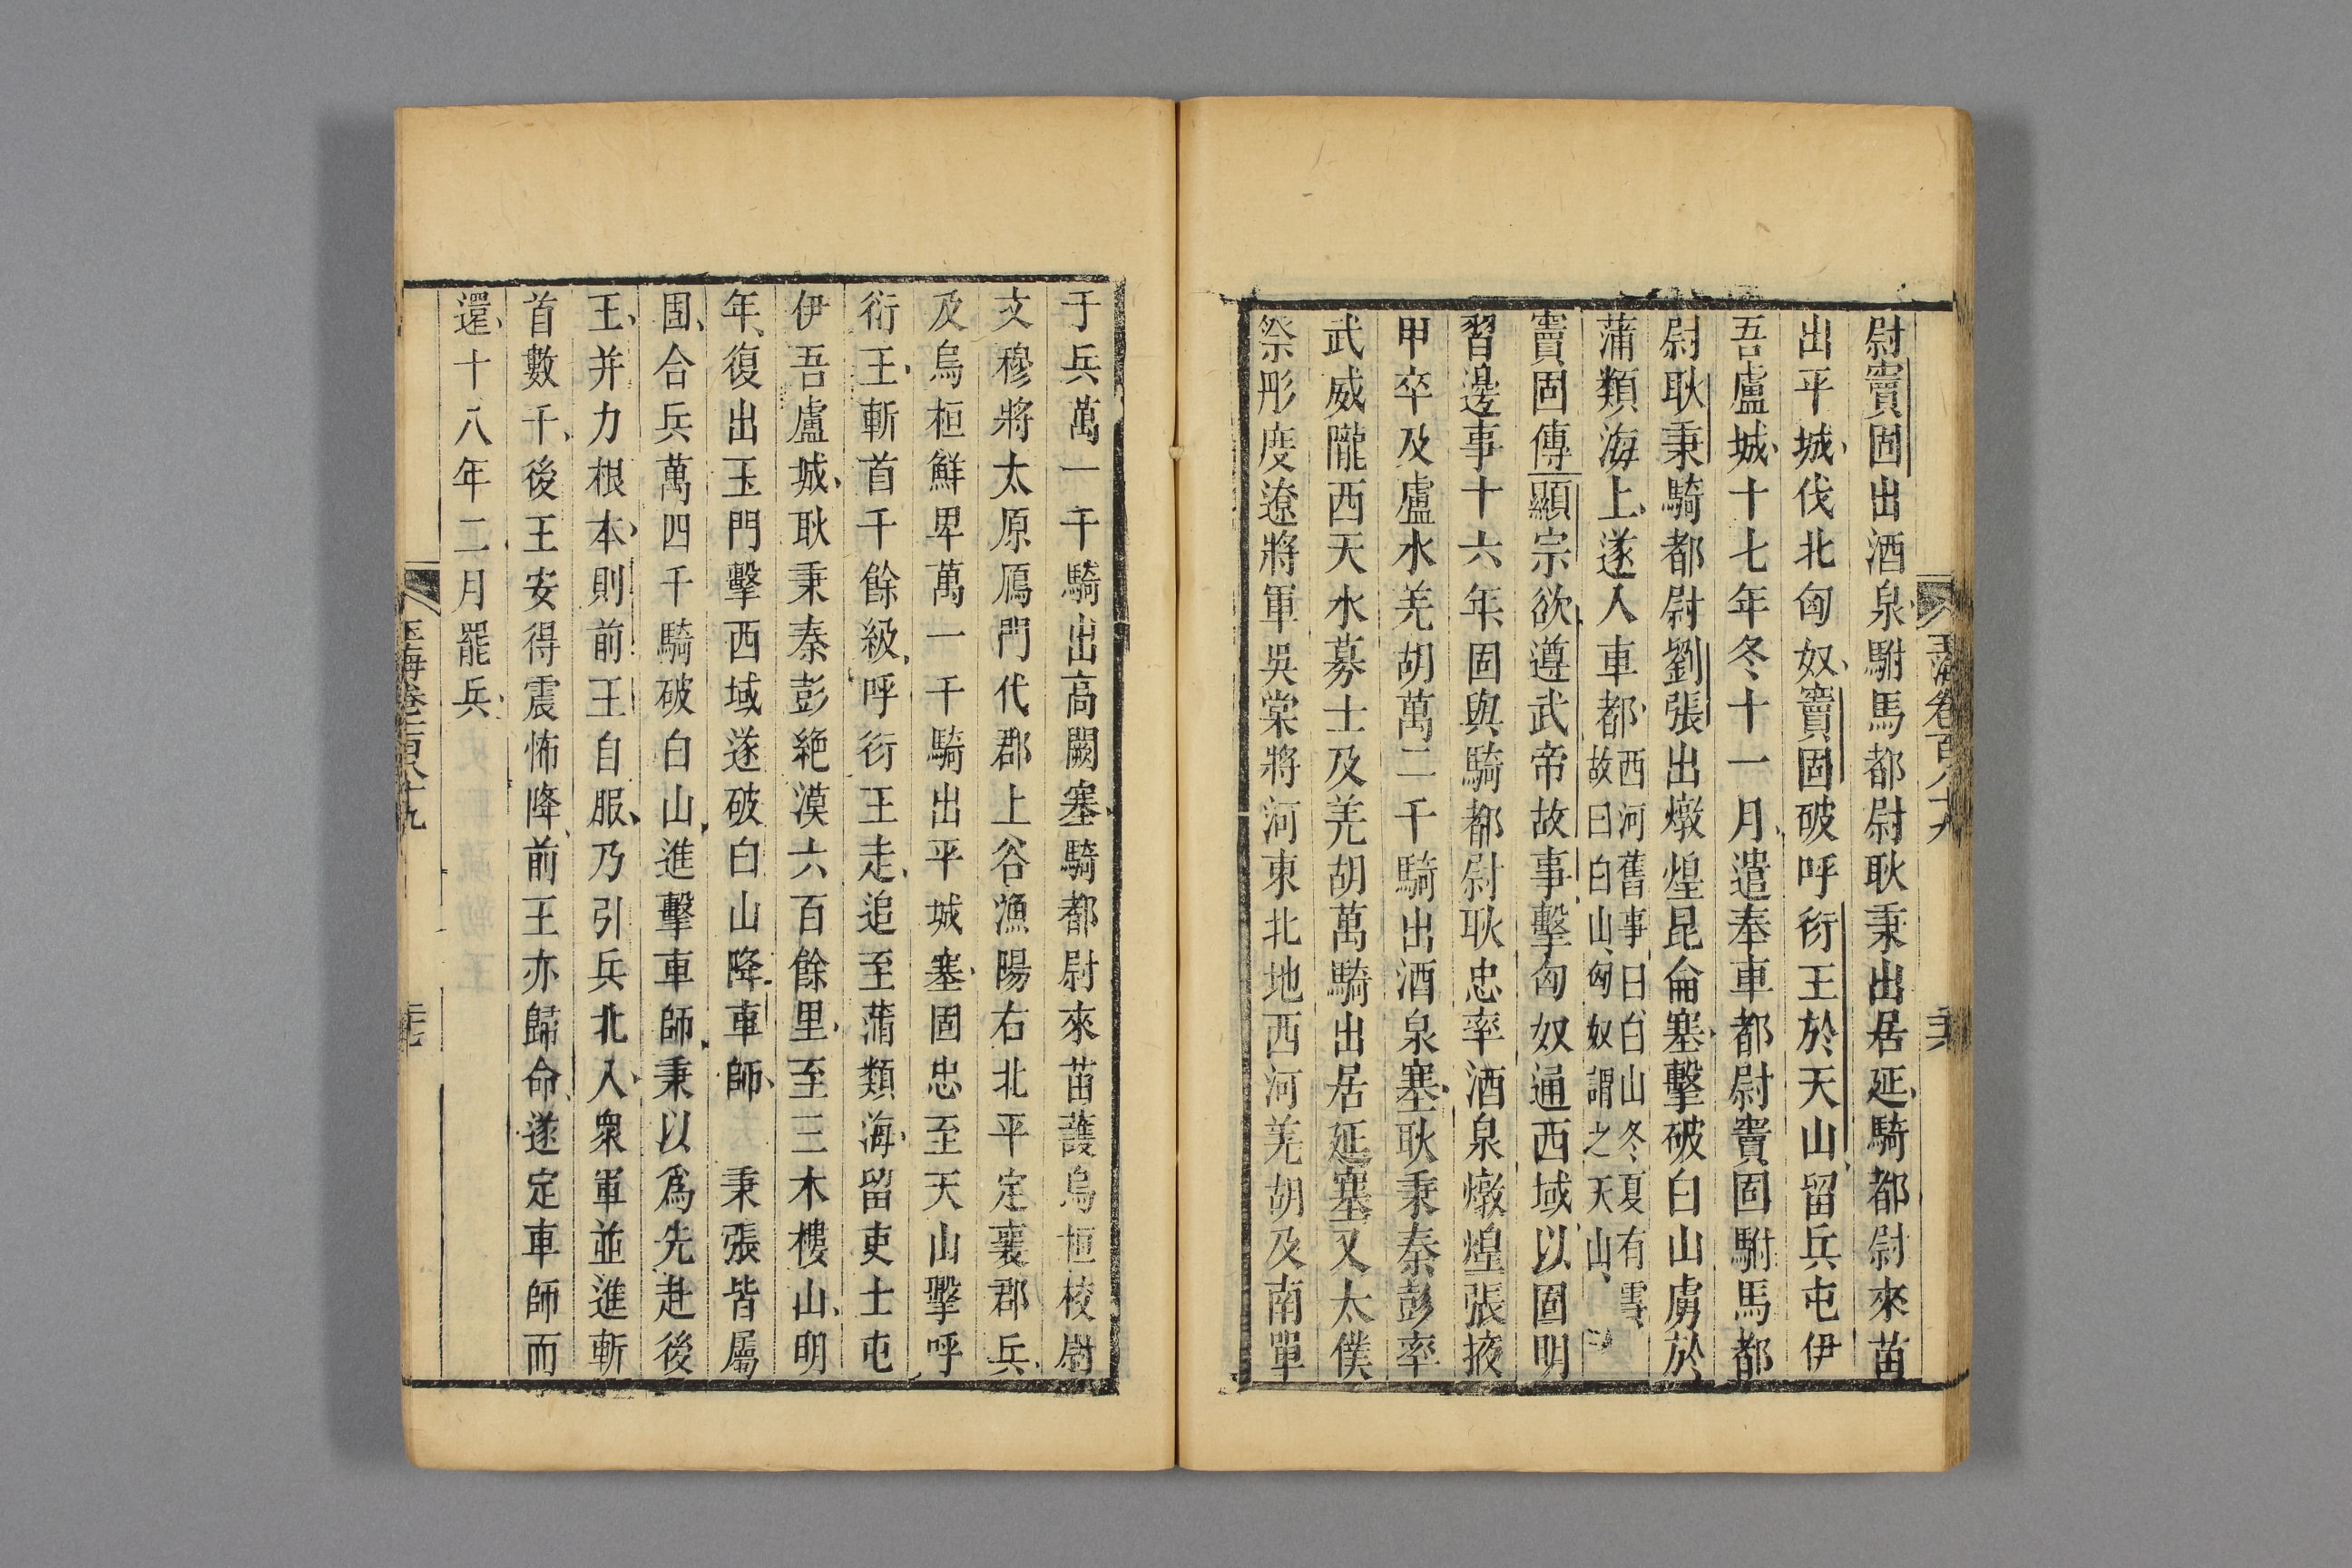 尉竇固出酒泉駙馬都尉耿秉出居延騎都尉來苗
出平城伐北匈奴竇固破呼衍王於天山留兵屯伊
吾盧城十七年冬十一月遣奉車都尉竇固駙馬都
尉耿秉騎都尉劉張出燉煌昆侖塞擊破白山虜於
蒲類海上遂入車都
西河舊事曰白山冬夏有雪
故曰白山匈奴謂之天山
竇固傳顯宗欲遵武帝故事擊匈奴通西域以固明
習邊事十六年固與騎都尉耿忠率酒泉燉煌張掖
甲卒及盧水羌胡萬二千騎出酒泉塞耿秉秦彭率
武威隴西天水募士及羌胡萬騎出居延塞又太僕
祭彤度遼將軍吳棠將河東北地西河羌胡及南單
于兵萬一千騎出高闕塞騎都尉來苗護烏桓校尉
文穆將太原鴈門代郡上谷漁陽右北平定襄郡兵
及烏桓鮮卑萬一千騎出平城塞固忠至天山擊呼
衍王斬首千餘級呼衍王走追至蒲類海留吏士屯
伊吾盧城耿秉秦彭絶漠六百餘里至三木樓山明
年復出玉門擊西域遂破白山降車師 秉張皆屬
固合兵萬四千騎破白山進擊車師秉以爲先赴後
王并力根本則前王自服乃引兵北入衆軍並進斬
首數千後王安得震怖降前王亦歸命遂定車師而
還十八年二月罷兵
玉海卷一百八十九